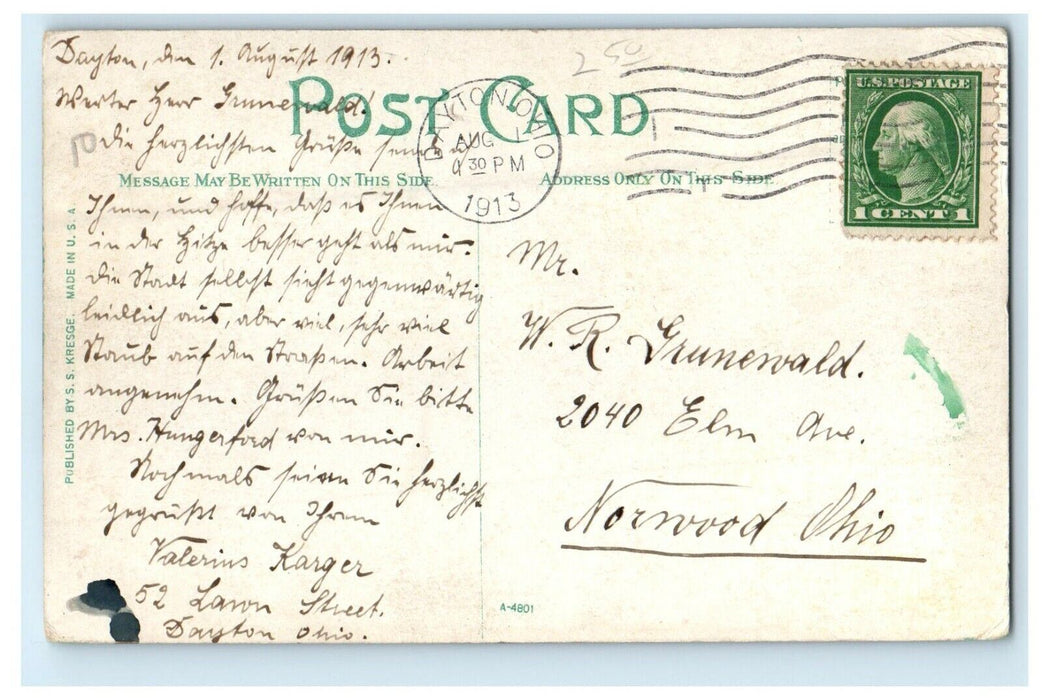 Dayton, den 1. August 1913.
250
Werter Herr Grunewald!
POST CARD
10
Die herzlichsten Grüße sende
MESSAGE MAY BE WRITTEN ON THIS SIDE
ADDRESS ONLY ON THIS SIDE
DAYTON, OHIO
AUG 1
9 30 PM
1913
U.S. POSTAGE
1 CENT 1
Ihnen, und hoffe, daß es Ihnen
in der Hitze besser geht als mir.
Die Stadt selbst sieht gegenwärtig
leidlich aus, aber viel, sehr viel
Staub auf den Straßen. Arbeit
angenehm. Grüßen Sie bitte
Mrs. Hungerford von mir.
Nochmals seien Sie herzlichst
gegrüßt von Ihrem
Valerius Karger
52 Lawn Street.
Dayton Ohio.
Mr.
W. R. Grunewald.
2040 Elm Ave.
Norwood Ohio
PUBLISHED BY S. S. KRESGE. MADE IN U. S. A.
A-4801